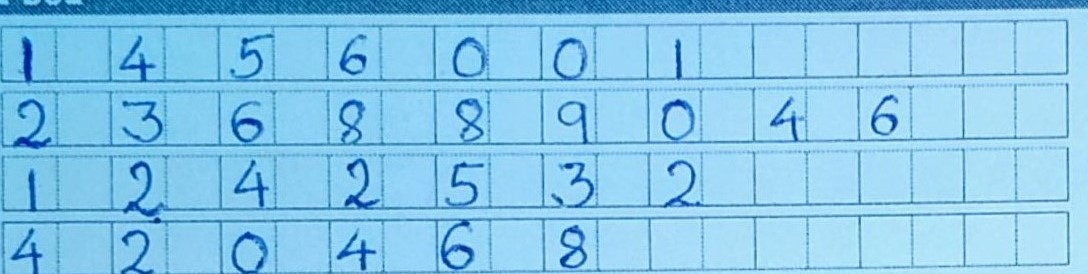 1 4 5 6 0 0 1
2 3 6 8 8 9 0 4 6
1 2 4 2 5 3 2
4 2 0 4 6 8